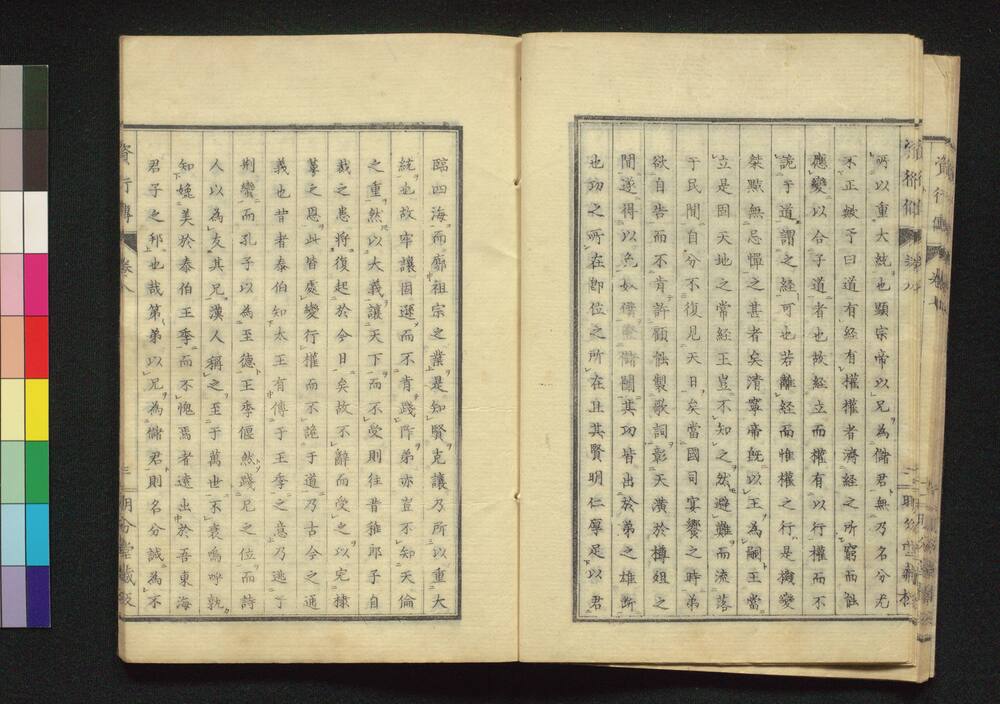 所以重大統也顯宗帝以兄為儲君無乃名分尤
不正歟予曰道有經有權權者濟經之所窮而蝕
應變以合于道者也故經立而權有以行權而不
詭乎道謂之經可也若離經而惟權之行是擬變
桀黠無忌憚之甚者矣清寧帝既以王為嗣王當
立是固天地之常經王豈不知之然避難而流落
于民間自分不復見天日矣當國司宴饗之時弟
欲自告而不肯許顧蝕製歌詞彰天潢於樽俎之
間遂得以免奴僕登儲闈其功皆出於弟之雄斷
也功之所在即位之所在且其賢明仁厚足以君
臨四海而廓祖宗之業是知賢克讓乃所以重大
統也故牢讓固遜而不肯踐阼弟亦豈不知天倫
之重然以大義讓天下而不受則往昔稚郎子自
裁之患將復起於今日矣故不辭而受之以完棣
萼之恩此皆處變行權而不詭于道乃古今之通
義也昔者泰伯知太王有傳于王季之意乃逃于
荆蠻而孔子以為至德王季偃然踐兄之位而詩
人以為友其兄漢人稱之至于萬世不衰嗚呼孰
知媲美於泰伯王季而不愧焉者遠出於吾東海
君子之邦也哉第弟以兄為儲君則名分誠為不
資行傳 卷八 三 明分堂藏版